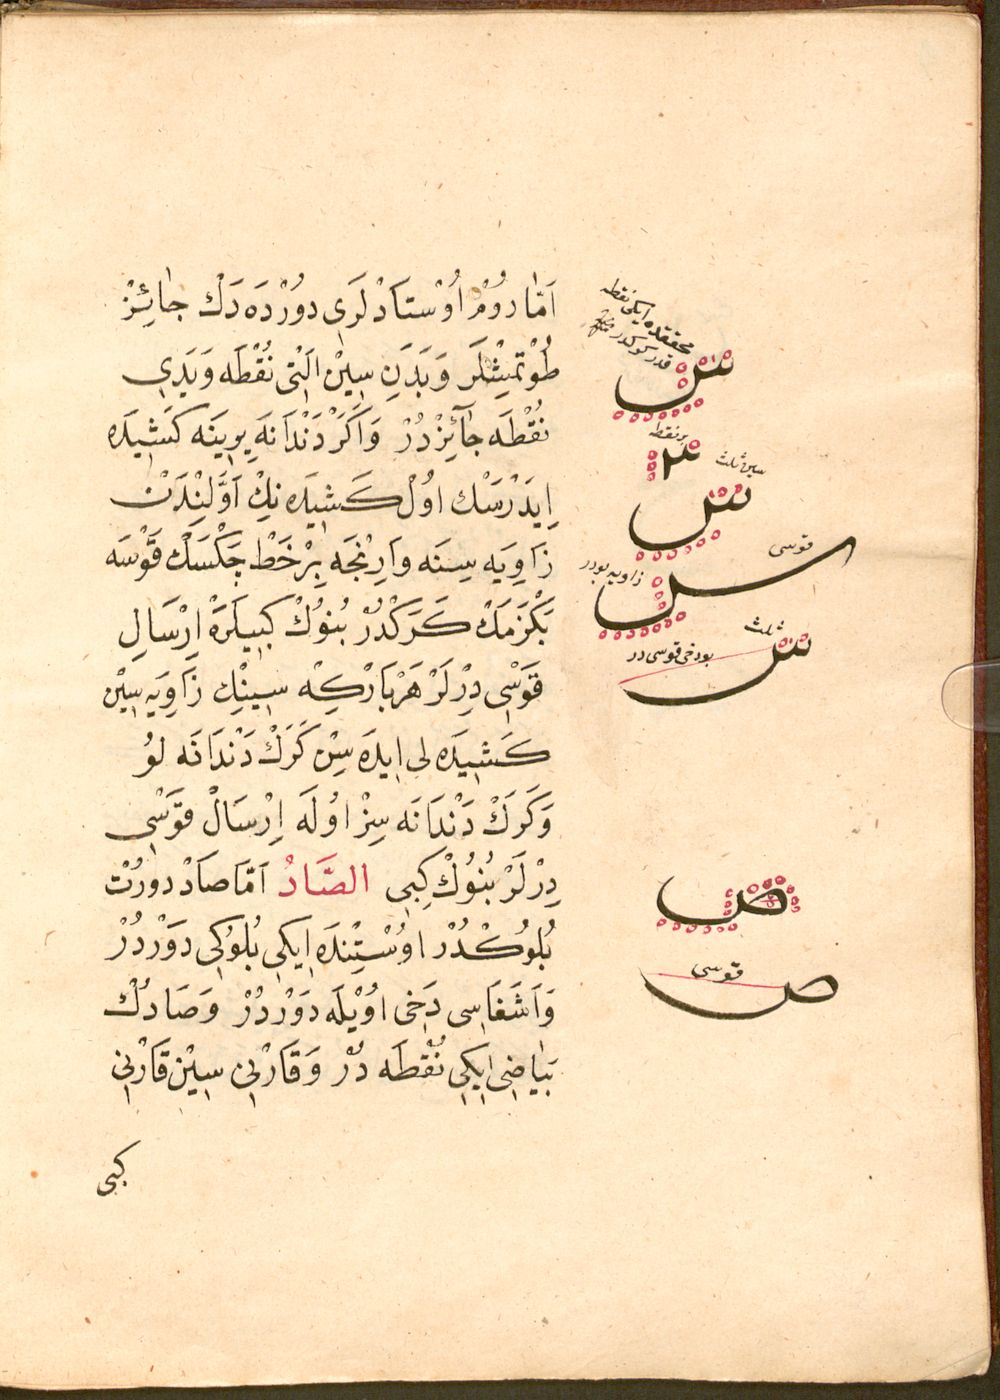 اَمَّا رُوْمْ اُوْسْتَادْلَرِی دُوْرْدَه دَكْ جٰائِزْ
طُوْتْمِيْشْلَرْ وَ بَدَنِ سِيْن اَلْتِی نُقْطَه وَ يَدِی
نُقْطَه جٰآئِزْدُرْ وَ اَكَرْ دَنْدَانَهِ يِرِينَه كَشِيدَه
اِيدَرْسَكْ اُوْل كَشِيدَه نِكْ اَوَّلِنْدَنْ
زَاوِيَه سِنَه وَارِنْجَه بِرْخَطْ چَكْسَكْ قَوْسَه
بَكْزَمَكْ كَرَكْدُرْ بُنُوْكْ كِبِيلَرَهْ اِرْسَالِ
قَوْسِی دِرْلَرْ هَرْبَارْكِهْ سِينِكْ زَاوِيَه سِيْن
كَشِيدَه لی ایدَه سِنْ كَرَكْ دَنْدَانَه لُوْ
وَ كَرَكْ دَنْدَانَه سِزْ اوُلَه اِرْسَالْ قَوْسِی
دِرْلَرْ بُنُوْكْ كِبِی الصَّادُ اَمَّا صَادْ دورْتْ
بُلوُكْدُرْ اوُسْتِنْدَه اِیكِی بُلوُكِی دَوْرْدُرْ
وَ اَشَغَاسِی دَخِی اوُيْلَه دَوْرْدُرْ وَ صَادُكْ
بَيَاضِی اِیكِی نُقْطَه دُرْ وَ قَارْنِی سِيْن قَارْنِی
كبی
محققده ایكی نقطه
قدر
س
بر نقطه
سین ثلث
س
قوسی
زاویه بودر
س
ثلث
بو دخی قوسی در
س
ص
قوسی
ص